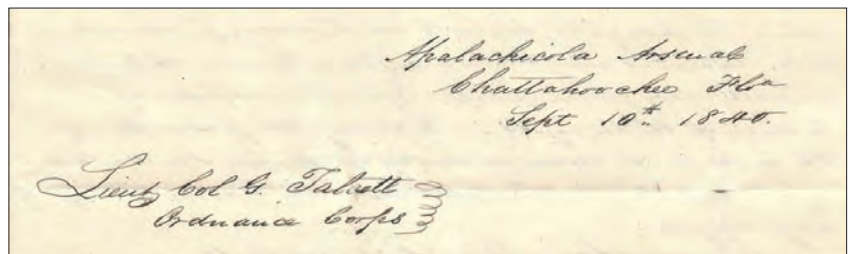 Apalachicola Arsenal
Chattahoochee Floa
Sept 10th 1840.
Lieut Col G. Talcott
Ordnance Corps